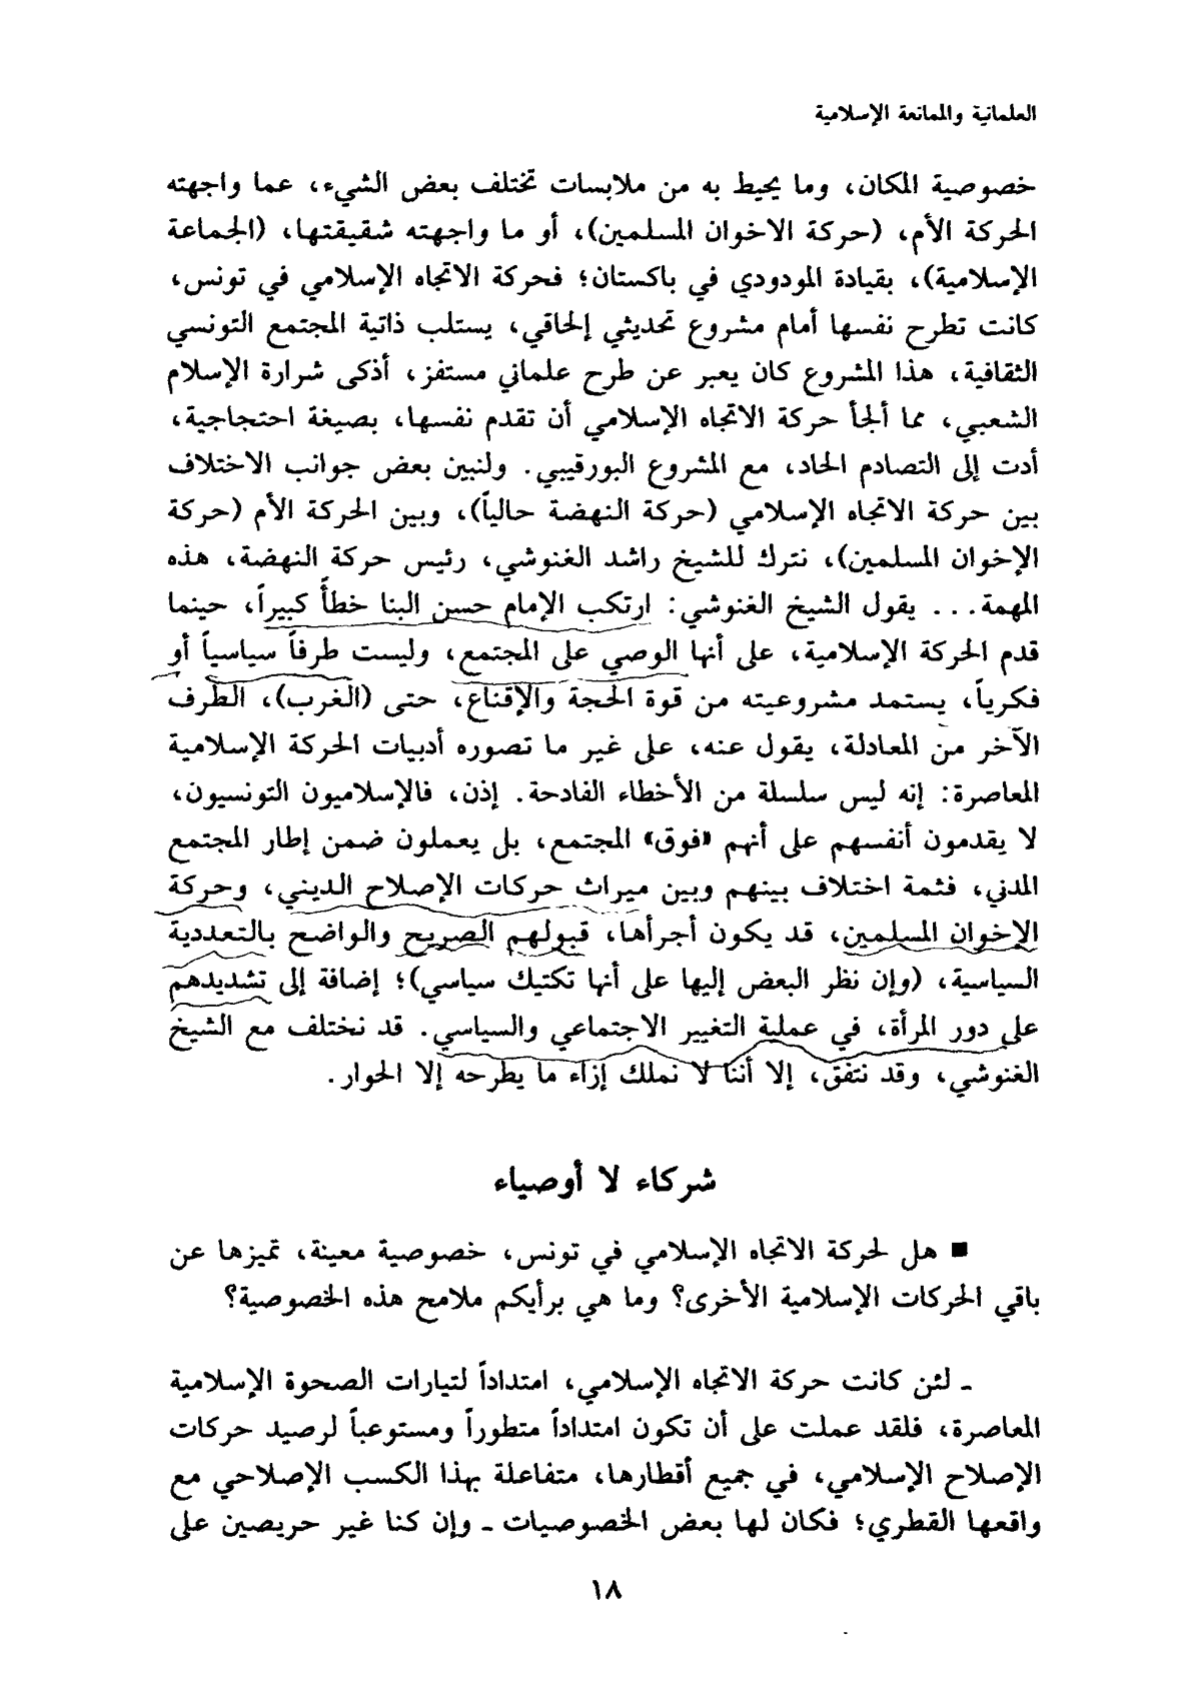 العلمانية والممانعة الإسلامية
خصوصية المكان، وما يحيط به من ملابسات تختلف بعض الشيء، عما واجهته
الحركة الأم، (حركة الاخوان المسلمين)، أو ما واجهته شقيقتها، (الجماعة
الإسلامية)، بقيادة المودودي في باكستان؛ فحركة الاتجاه الإسلامي في تونس،
كانت تطرح نفسها أمام مشروع تحديثي إلحاقي، يستلب ذاتية المجتمع التونسي
الثقافية، هذا المشروع كان يعبر عن طرح علماني مستفز، أذكى شرارة الإسلام
الشعبي، مما ألجأ حركة الاتجاه الإسلامي أن تقدم نفسها، بصيغة احتجاجية،
أدت إلى التصادم الحاد، مع المشروع البورقيبي. ولنبين بعض جوانب الاختلاف
بين حركة الاتجاه الإسلامي (حركة النهضة حالياً)، وبين الحركة الأم (حركة
الإخوان المسلمين)، نترك للشيخ راشد الغنوشي، رئيس حركة النهضة، هذه
المهمة... يقول الشيخ الغنوشي: ارتكب الإمام حسن البنا خطأً كبيراً، حينما
قدم الحركة الإسلامية، على أنها الوصي على المجتمع، وليست طرفاً سياسياً أو
فكرياً، يستمد مشروعيته من قوة الحجة والإقناع، حتى (الغرب)، الطرف
الآخر من المعادلة، يقول عنه، على غير ما تصوره أدبيات الحركة الإسلامية
المعاصرة: إنه ليس سلسلة من الأخطاء الفادحة. إذن، فالإسلاميون التونسيون،
لا يقدمون أنفسهم على أنهم «فوق» المجتمع، بل يعملون ضمن إطار المجتمع
المدني، فثمة اختلاف بينهم وبين ميراث حركات الإصلاح الديني، وحركة
الإخوان المسلمين، قد يكون أجرأها، قبولهم الصريح والواضح بالتعددية
السياسية، (وإن نظر البعض إليها على أنها تكتيك سياسي)؛ إضافة إلى تشديدهم
على دور المرأة، في عملية التغيير الاجتماعي والسياسي. قد نختلف مع الشيخ
الغنوشي، وقد نتفق، إلا أننا لا نملك إزاء ما يطرحه إلا الحوار.
شركاء لا أوصياء
■ هل لحركة الاتجاه الإسلامي في تونس، خصوصية معينة، تميزها عن
باقي الحركات الإسلامية الأخرى؟ وما هي برأيكم ملامح هذه الخصوصية؟
ـ لئن كانت حركة الاتجاه الإسلامي، امتداداً لتيارات الصحوة الإسلامية
المعاصرة، فلقد عملت على أن تكون امتداداً متطوراً ومستوعباً لرصيد حركات
الإصلاح الإسلامي، في جميع أقطارها، متفاعلة بهذا الكسب الإصلاحي مع
واقعها القطري؛ فكان لها بعض الخصوصيات ـ وإن كنا غير حريصين على
١٨